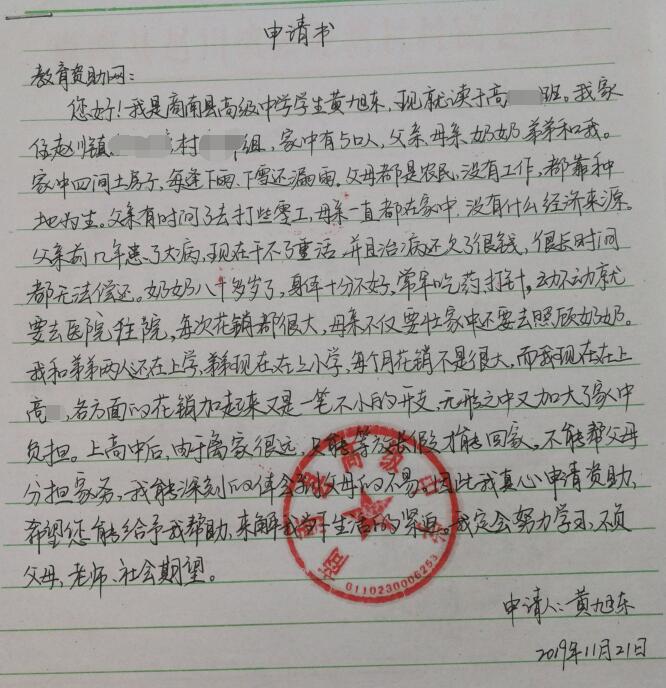 申请书
教育资助网：
您好！我是商南县高级中学学生黄旭东，现就读于高班。我家
住赵川镇村组，家中有5口人，父亲、母亲、奶奶、弟弟和我。
家中四间土房子，每逢下雨、下雪还漏雨，父母都是农民，没有工作，都靠种
地为生。父亲有时间了去打些零工，母亲一直都在家中，没有什么经济来源。
父亲前几年患了大病，现在干不了重活，并且治病还欠了很钱，很长时间
都无法偿还。奶奶八十多岁了，身体十分不好，常年吃药、打针，动不动就
要去医院住院，每次花销都很大，母亲不仅要忙家中还要去照顾奶奶。
我和弟弟两人还在上学，弟弟现在在上小学，每个月花销不是很大，而我现在在上
高，各方面的花销加起来又是一笔不小的开支，无形之中又加大了家中
负担。上高中后，由于离家很远，只能等放长假才能回家。不能帮父母
分担家务，我能深刻的体会到父母的不易，因此我真心申请资助，
希望您能给予我帮助，来解我生活的紧迫。我定会努力学习，不负
父母、老师、社会期望。
高级
0110230006253
申请人：黄旭东
2019年11月21日